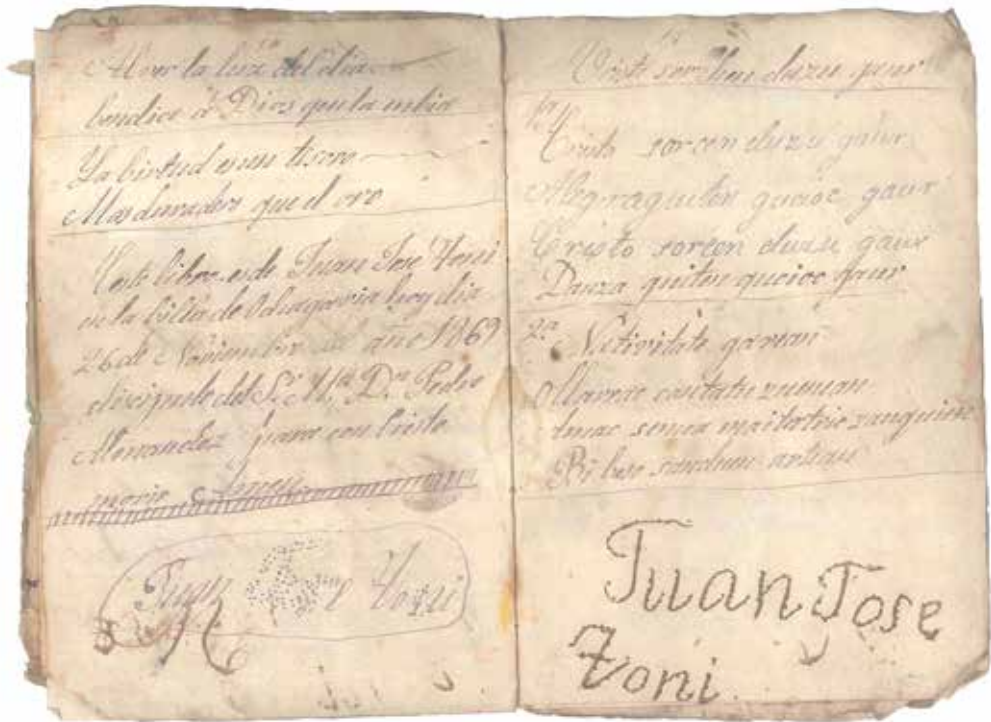 Al ver la luz del dia
bendice á Dios que la embia
La birtud es un tisoro
Mas duradero que el oro
Este libro es de Juan José Toni
en la billa de Ochagavia hoy dia
26 de Noviembre del año 1869
discipulo del Sr. Mtro. Dn. Pedro
para con Cristo
morir Amen
Juan Jose Toni
Cristo sorcen duzu gaur
1a
Cristo sorcen duzu gaur
Alegraquiten guacioc gaur
Cristo sorcen duzu gaur
Danza quiten guacioc gaur
2a Natividite garean
Marrac cantatu zununan
bere semea maitatric zanguiene
Bi lasto sanduen artean
Juan Jose
Toni